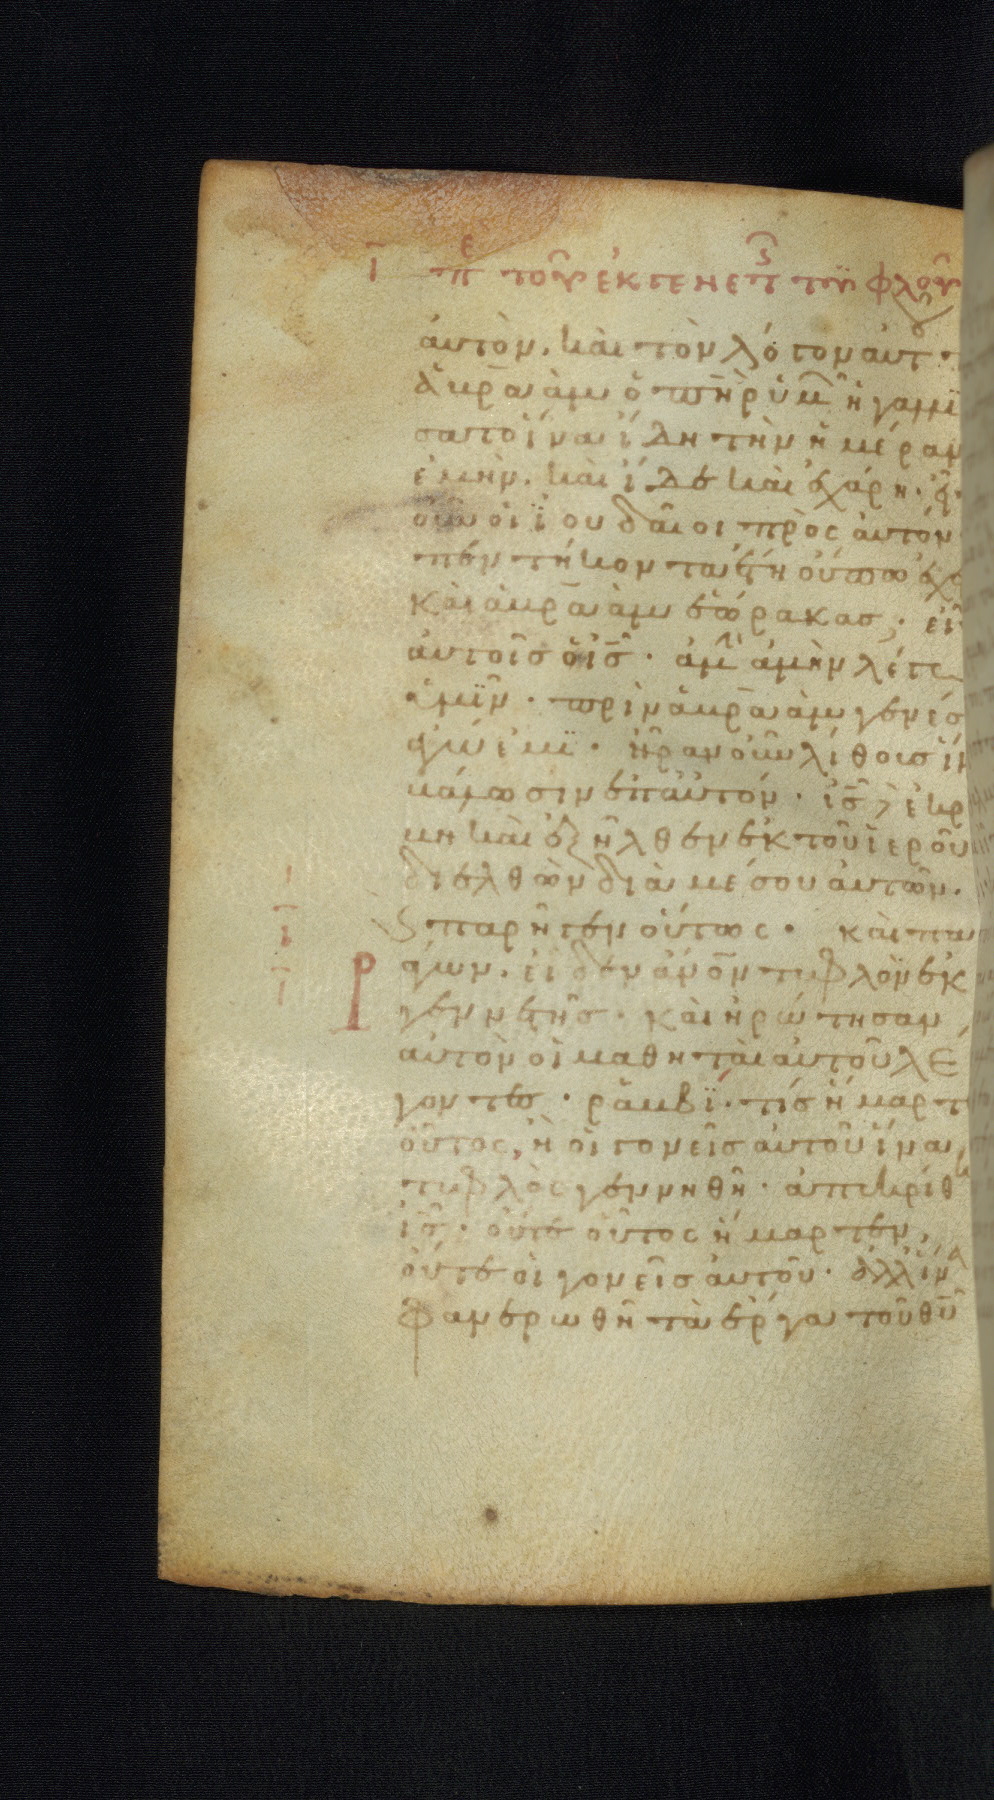 ῑ πε τοῦ ἐκ γενετῆς τυφλοῦ
ἀυτὸν. καὶ τὸν λόγον αὐτοῦ
ἀβρ̄ααμ ὁ πη̄ρ ὑμῶ ἠγαλλι
σατο ἵνα ἴδη τὴν ἡμέραν
ἐμὴν. καὶ ἴδε καὶ ἐχάρη·
οὖν οἱ ϊουδαῖοι πρὸς ἀυτόν
πεντήκοντα ἔτη οὔπω ἔχε
καὶ ἀβρ̄ααμ ἑώρακασ; εἶ
ἀυτοῖσ ὁ ις̄· ἀμὴ ἀμὴν λέγω
ὑμῖν· πρὶν ἀβρ̄ααμ γενέσ
ἐγώ εἰμϊ· ἦραν οὖν λίθουσ ἵν
βάλωσιν ἐπ' αὐτόν· ις̄ δὲ ἐκρ
βη καὶ ἐξῆλθεν ἐκ τοῦ ἱεροῦ
διελθὼν διὰ μέσου αὐτῶν.
ϛ παρῆγεν οὕτως· καὶ πα
ῑ
ῑ
ράγων. εἶδεν ἄνο̄ν τυφλὸν ἐκ
γεννετῆσ· καὶ ἠρώτησαν
αὐτὸν οἱ μαθηταὶ αὐτοῦ λέ
γοντεσ· ῥαββϊ· τίσ ἥμαρτ
οὗτος, ἢ οἱ γονεῖσ αὐτοῦ ἵνα
τυφλὸς γεννηθῆ· ἀπεκρίθ
ις̄· οὔτε οὗτος ἥμαρτεν,
οὔτε οἱ γονεῖσ αὐτοῦ· ἀλλ' ἵνα
φανερωθῆ τὰ ἔργα τοῦ θῡ